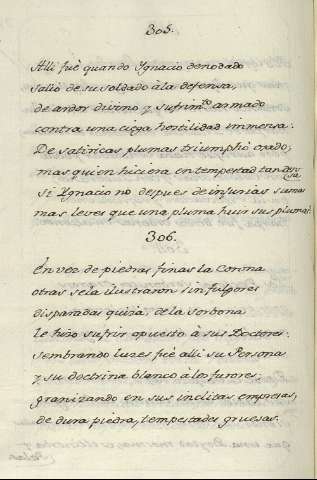 305.
Alli fuè quando Ygnacio denodado
saliò de su soldado à la defensa,
de ardor divino y sufrim.to armado
contra una ciega hostilidad immensa.
De satiricas plumas triumphò osado;
mas quien hiciera en tempestad tan densa
si Ygnacio no despues de injurias sumas
mas leves que una pluma huir sus plumas?
306.
En vez de piedras finas la Corona
otras se la ilustraron sin fulgores
disparadas quizà, de la Sorbona
le hizo sufrir opuesto à sus Doctores.
Sembrando luzes fuè alli su Persona
y su doctrina blanco à los furores;
granizando en sus inclitas empresas,
de dura piedra, tempestades gruesas.